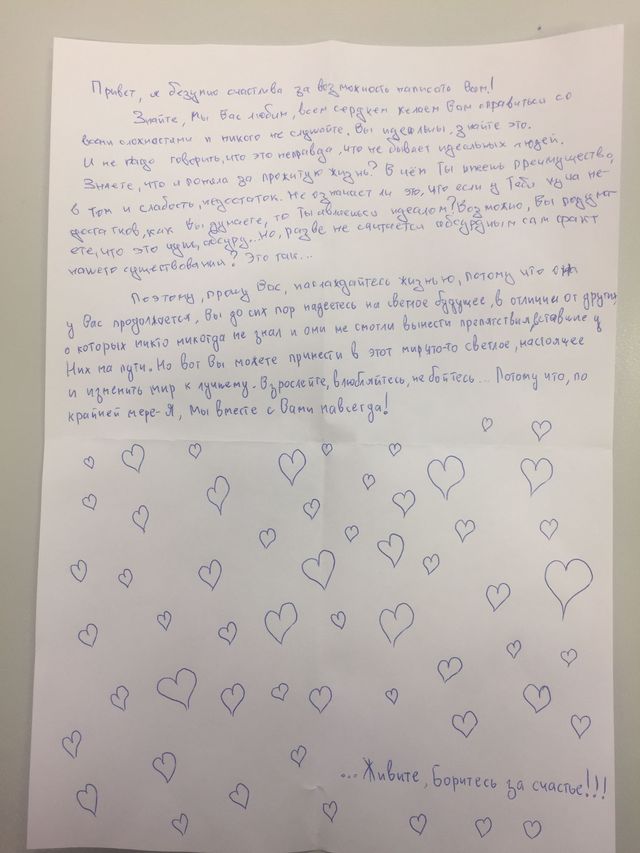 Привет, я безумно счастлива за возможность написать Вам!
Знайте, мы Вас любим, всем сердцем желаем Вам справиться со
всеми сложностями и никого не слушайте. Вы идеальны, знайте это.
И не надо говорить, что это неправда, что не бывает идеальных людей.
Знаете, что я поняла за прожитую жизнь? В чём Ты имеешь преимущество,
в том и слабость, недостаток. Не означает ли это, что если у Тебя куча не-
достатков, как Вы думаете, то Ты являешься идеалом? Возможно, Вы подума-
ете, что это чушь, абсурд... Но, разве не считается абсурдным сам факт
нашего существования? Это так...
Поэтому, прошу Вас, наслаждайтесь жизнью, потому что она
у Вас продолжается, Вы до сих пор надеетесь на светлое будущее, в отличии от других,
о которых никто никогда не знал и они не смогли вынести препятствия, вставшие у
Них на пути. Но вот Вы можете принести в этот мир что-то светлое, настоящее
и изменить мир к лучшему. Взрослейте, влюбляйтесь, не бойтесь... Потому что, по
крайней мере - Я, мы вместе с Вами навсегда!
...Живите, боритесь за счастье!!!